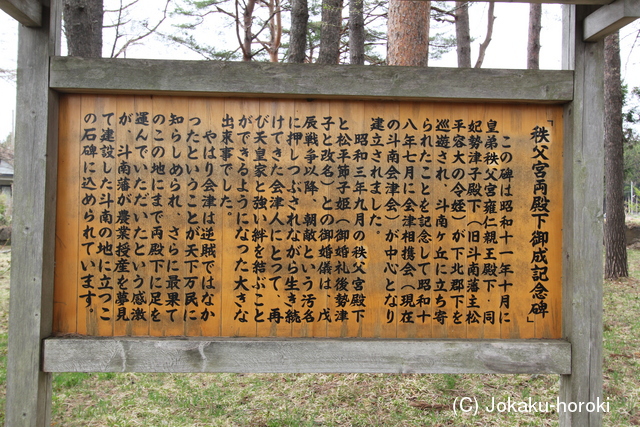 「秩父宮両殿下御成記念碑」
この碑は昭和十一年十月に
皇弟秩父宮雍仁親王殿下・同
妃勢津子殿下（旧斗南藩主松
平容大の令姪）が下北郡下を
巡遊され、斗南ヶ丘に立ち寄
られたことを記念して昭和十
八年七月に会津相携会（現在
の斗南会津会）が中心となり
建立されました。
昭和三年九月の秩父宮殿下
と松平節子姫（御婚礼後勢津
子と改名）との御婚儀は、戊
辰戦争以降、朝敵という汚名
に押しつぶされながら生き続
けてきた会津人にとって、再
び天皇家と強い絆を結ぶこと
ができるようになった大きな
出来事でした。
やはり会津は逆賊ではなか
ったということが天下万民に
知らしめられ、さらに最果て
のこの地にまで両殿下に足を
運んでいただいたという感激
が、斗南藩が農業授産を夢見
て建設した斗南の地に立つこ
の石碑に込められています。
(C) Jokaku-horoki